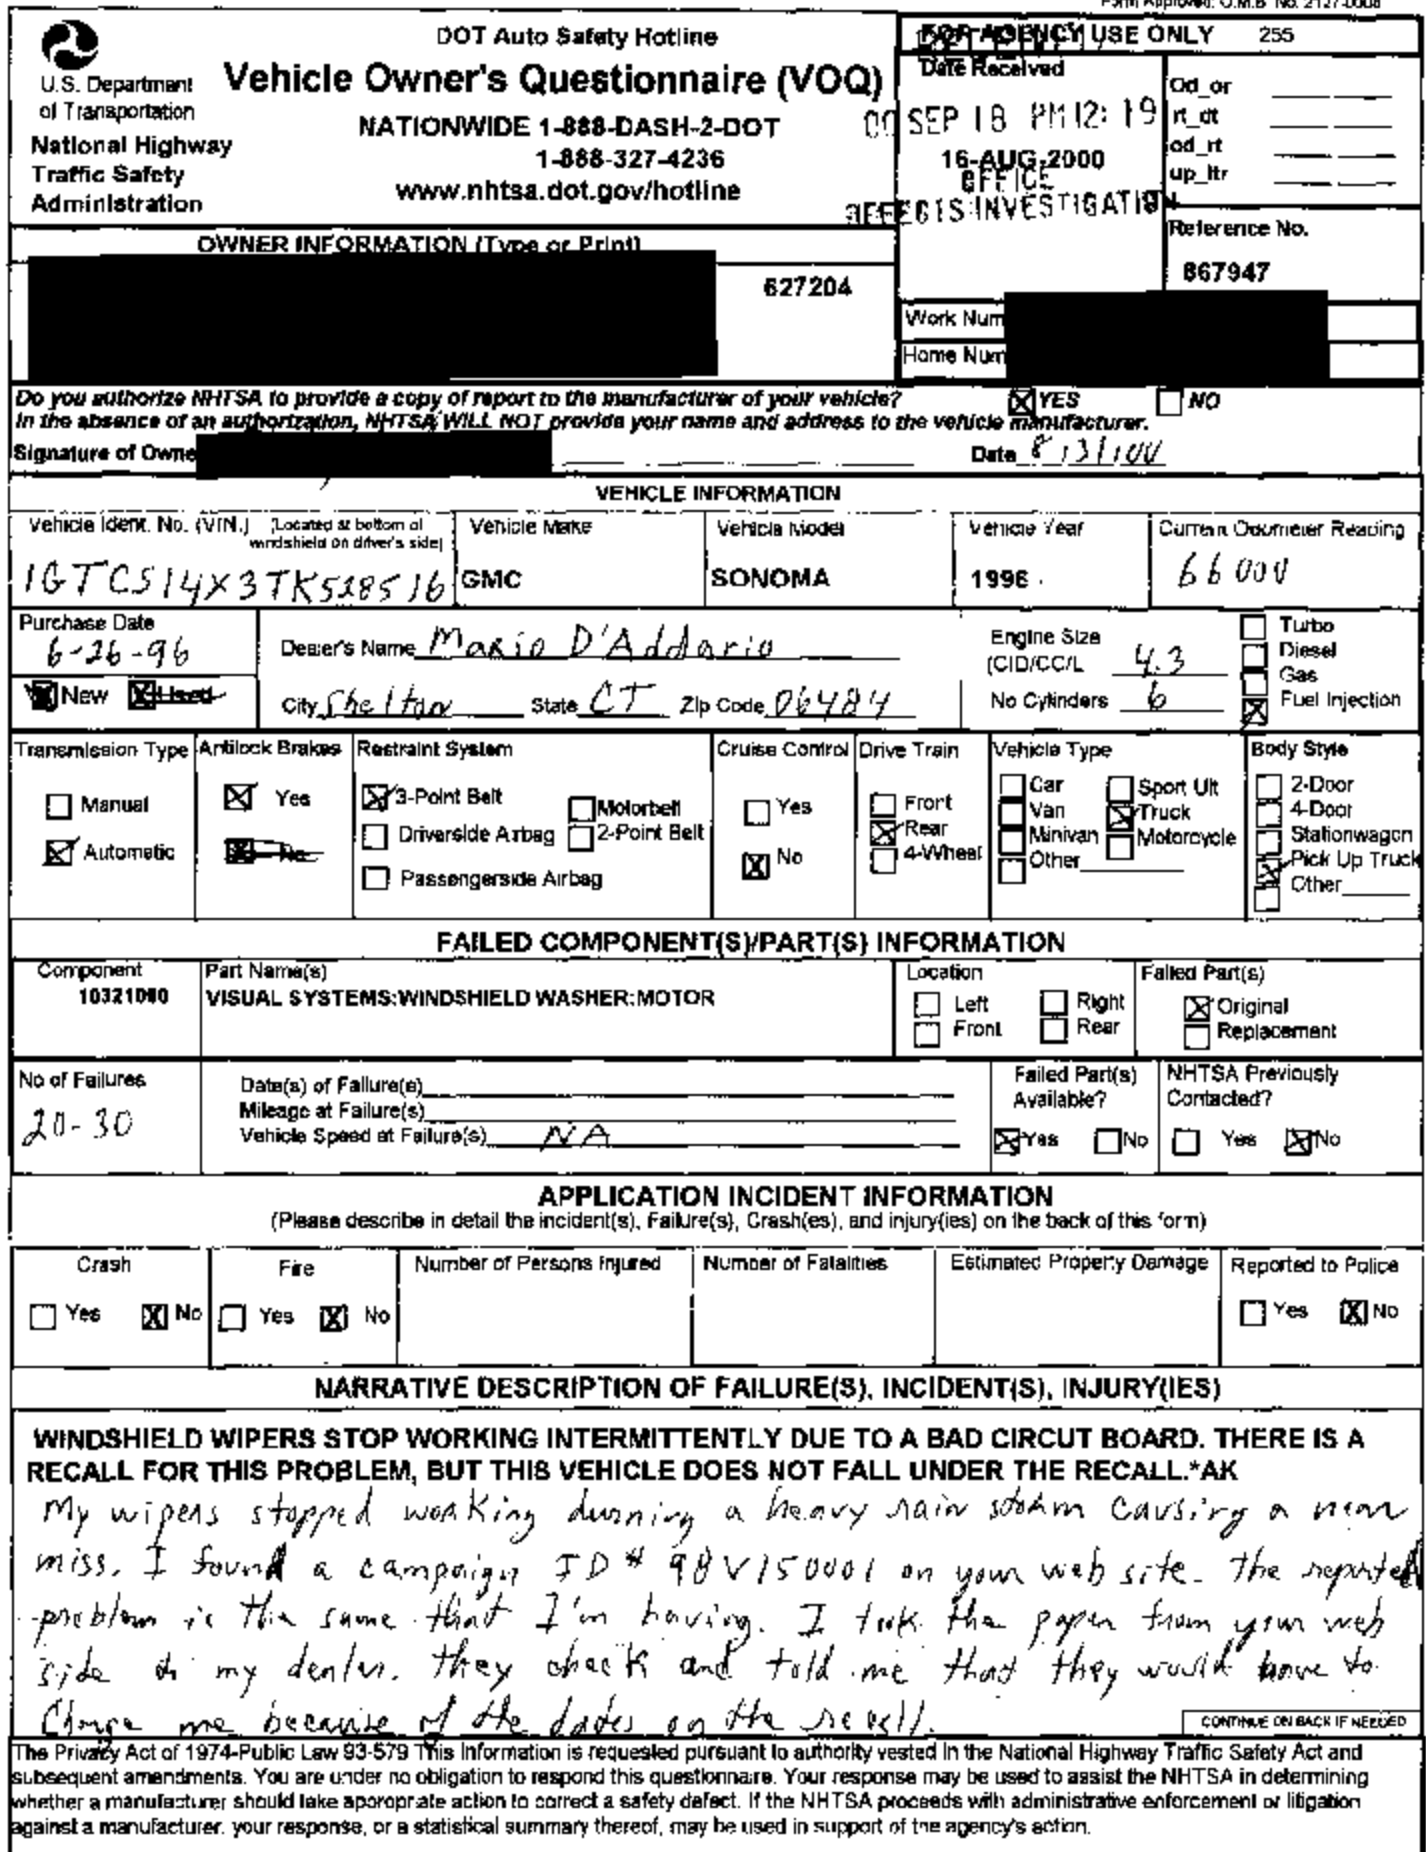 Form Approved: O.M.B. No. 2127-0008
U.S. Department
of Transportation
National Highway
Traffic Safety
Administration
DOT Auto Safety Hotline
Vehicle Owner's Questionnaire (VOQ)
NATIONWIDE 1-888-DASH-2-DOT
1-888-327-4236
www.nhtsa.dot.gov/hotline
FOR AGENCY USE ONLY 255
Date Received
00 SEP 18 PM 12: 19
16-AUG-2000
OFFICE
DEFECTS INVESTIGATION
Od_or
rt_dt
od_rt
up_ltr
Reference No.
867947
OWNER INFORMATION (Type or Print)
627204
Work Num
Home Num
Do you authorize NHTSA to provide a copy of report to the manufacturer of your vehicle? YES NO
In the absence of an authorization, NHTSA WILL NOT provide your name and address to the vehicle manufacturer.
Signature of Owne Date 8/31/00
VEHICLE INFORMATION
Vehicle Ident. No. (VIN.) (Located at bottom of windshield on driver's side)
1GTCS14X3TK528516
Vehicle Make
GMC
Vehicle Model
SONOMA
Vehicle Year
1996
Current Odometer Reading
66000
Purchase Date
6-26-96
New Used
Dealer's Name Mario D'Addario
City Shelton State CT Zip Code 06484
Engine Size
(CID/CC/L 4.3
No Cylinders 6
Turbo
Diesel
Gas
Fuel Injection
Transmission Type
Manual
Automatic
Antilock Brakes
Yes
No
Restraint System
3-Point Belt
Driverside Airbag
Passengerside Airbag
Motorbelt
2-Point Belt
Cruise Control
Yes
No
Drive Train
Front
Rear
4-Wheel
Vehicle Type
Car
Van
Minivan
Other
Sport Ult
Truck
Motorcycle
Body Style
2-Door
4-Door
Stationwagon
Pick Up Truck
Other
FAILED COMPONENT(S)/PART(S) INFORMATION
Component
Part Name(s)
VISUAL SYSTEMS:WINDSHIELD WASHER:MOTOR
Location
Left
Front
Right
Rear
Failed Part(s)
Original
Replacement
No of Failures
20-30
Date(s) of Failure(s)
Mileage at Failure(s)
Vehicle Speed at Failure(s) NA
Failed Part(s)
Available?
Yes No
NHTSA Previously
Contacted?
Yes No
APPLICATION INCIDENT INFORMATION
(Please describe in detail the incident(s), Failure(s), Crash(es), and injury(ies) on the back of this form)
Crash
Yes No
Fire
Yes No
Number of Persons Injured
Number of Fatalities
Estimated Property Damage
Reported to Police
Yes No
NARRATIVE DESCRIPTION OF FAILURE(S), INCIDENT(S), INJURY(IES)
WINDSHIELD WIPERS STOP WORKING INTERMITTENTLY DUE TO A BAD CIRCUT BOARD. THERE IS A
RECALL FOR THIS PROBLEM, BUT THIS VEHICLE DOES NOT FALL UNDER THE RECALL.*AK
My wipers stopped working durning a heavy rain storm causing a near
miss. I found a campaign ID # 98V150001 on your web site. The reported
problem is the same that I'm having. I took the paper from your web
side to my dealer. they check and told me that they would have to
Charge me because of the dates on the recall.
CONTINUE ON BACK IF NEEDED
The Privacy Act of 1974-Public Law 93-579 This Information is requested pursuant to authority vested in the National Highway Traffic Safety Act and
subsequent amendments. You are under no obligation to respond this questionnaire. Your response may be used to assist the NHTSA in determining
whether a manufacturer should take appropriate action to correct a safety defect. If the NHTSA proceeds with administrative enforcement or litigation
against a manufacturer, your response, or a statistical summary thereof, may be used in support of the agency's action.